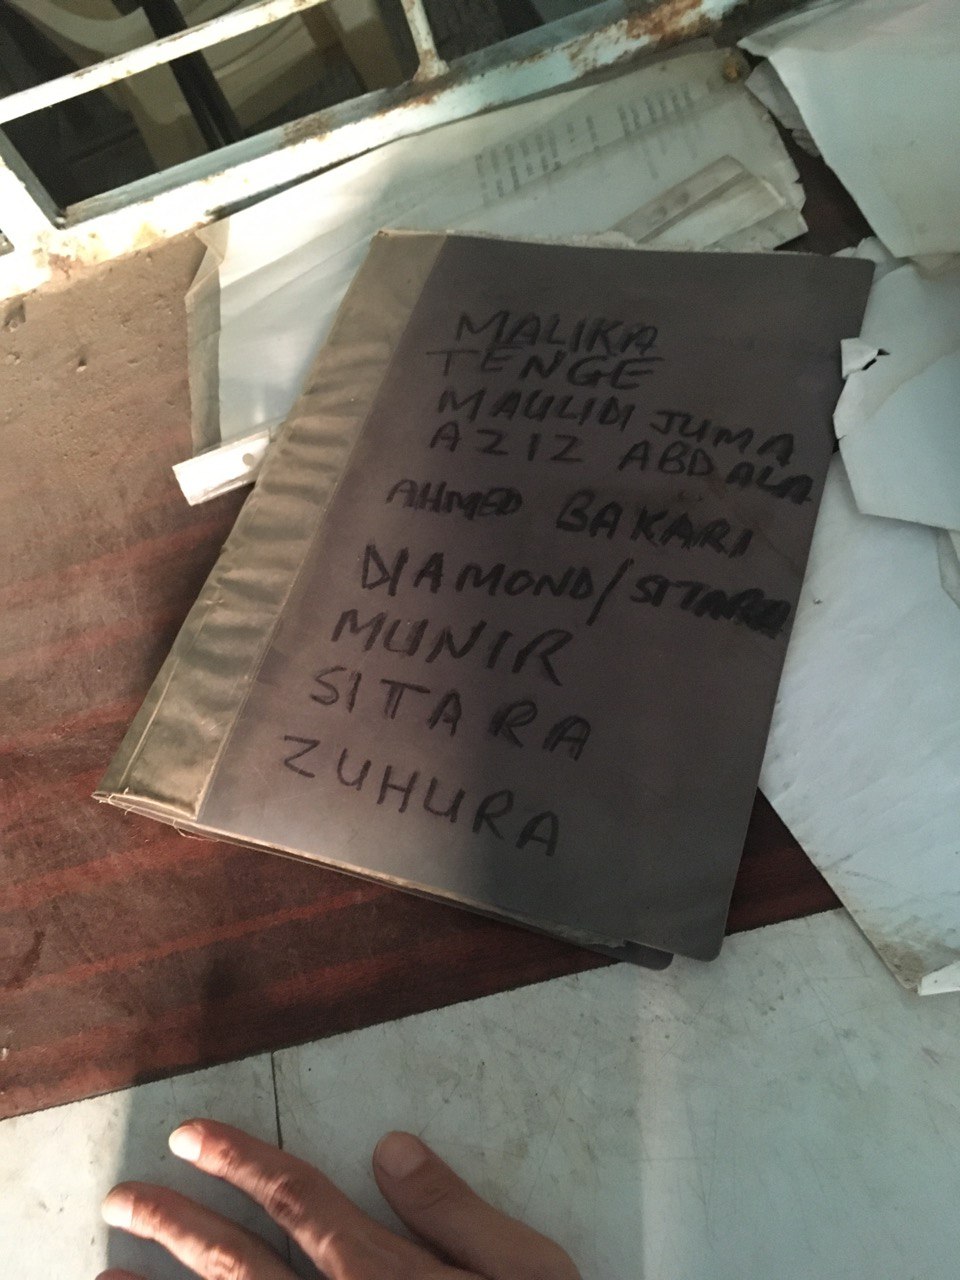 MALIKA
TENGE
MAULIDI JUMA
AZIZ ABDALA
AHMED BAKARI
DIAMOND/SITARA
MUNIR
SITARA
ZUHURA